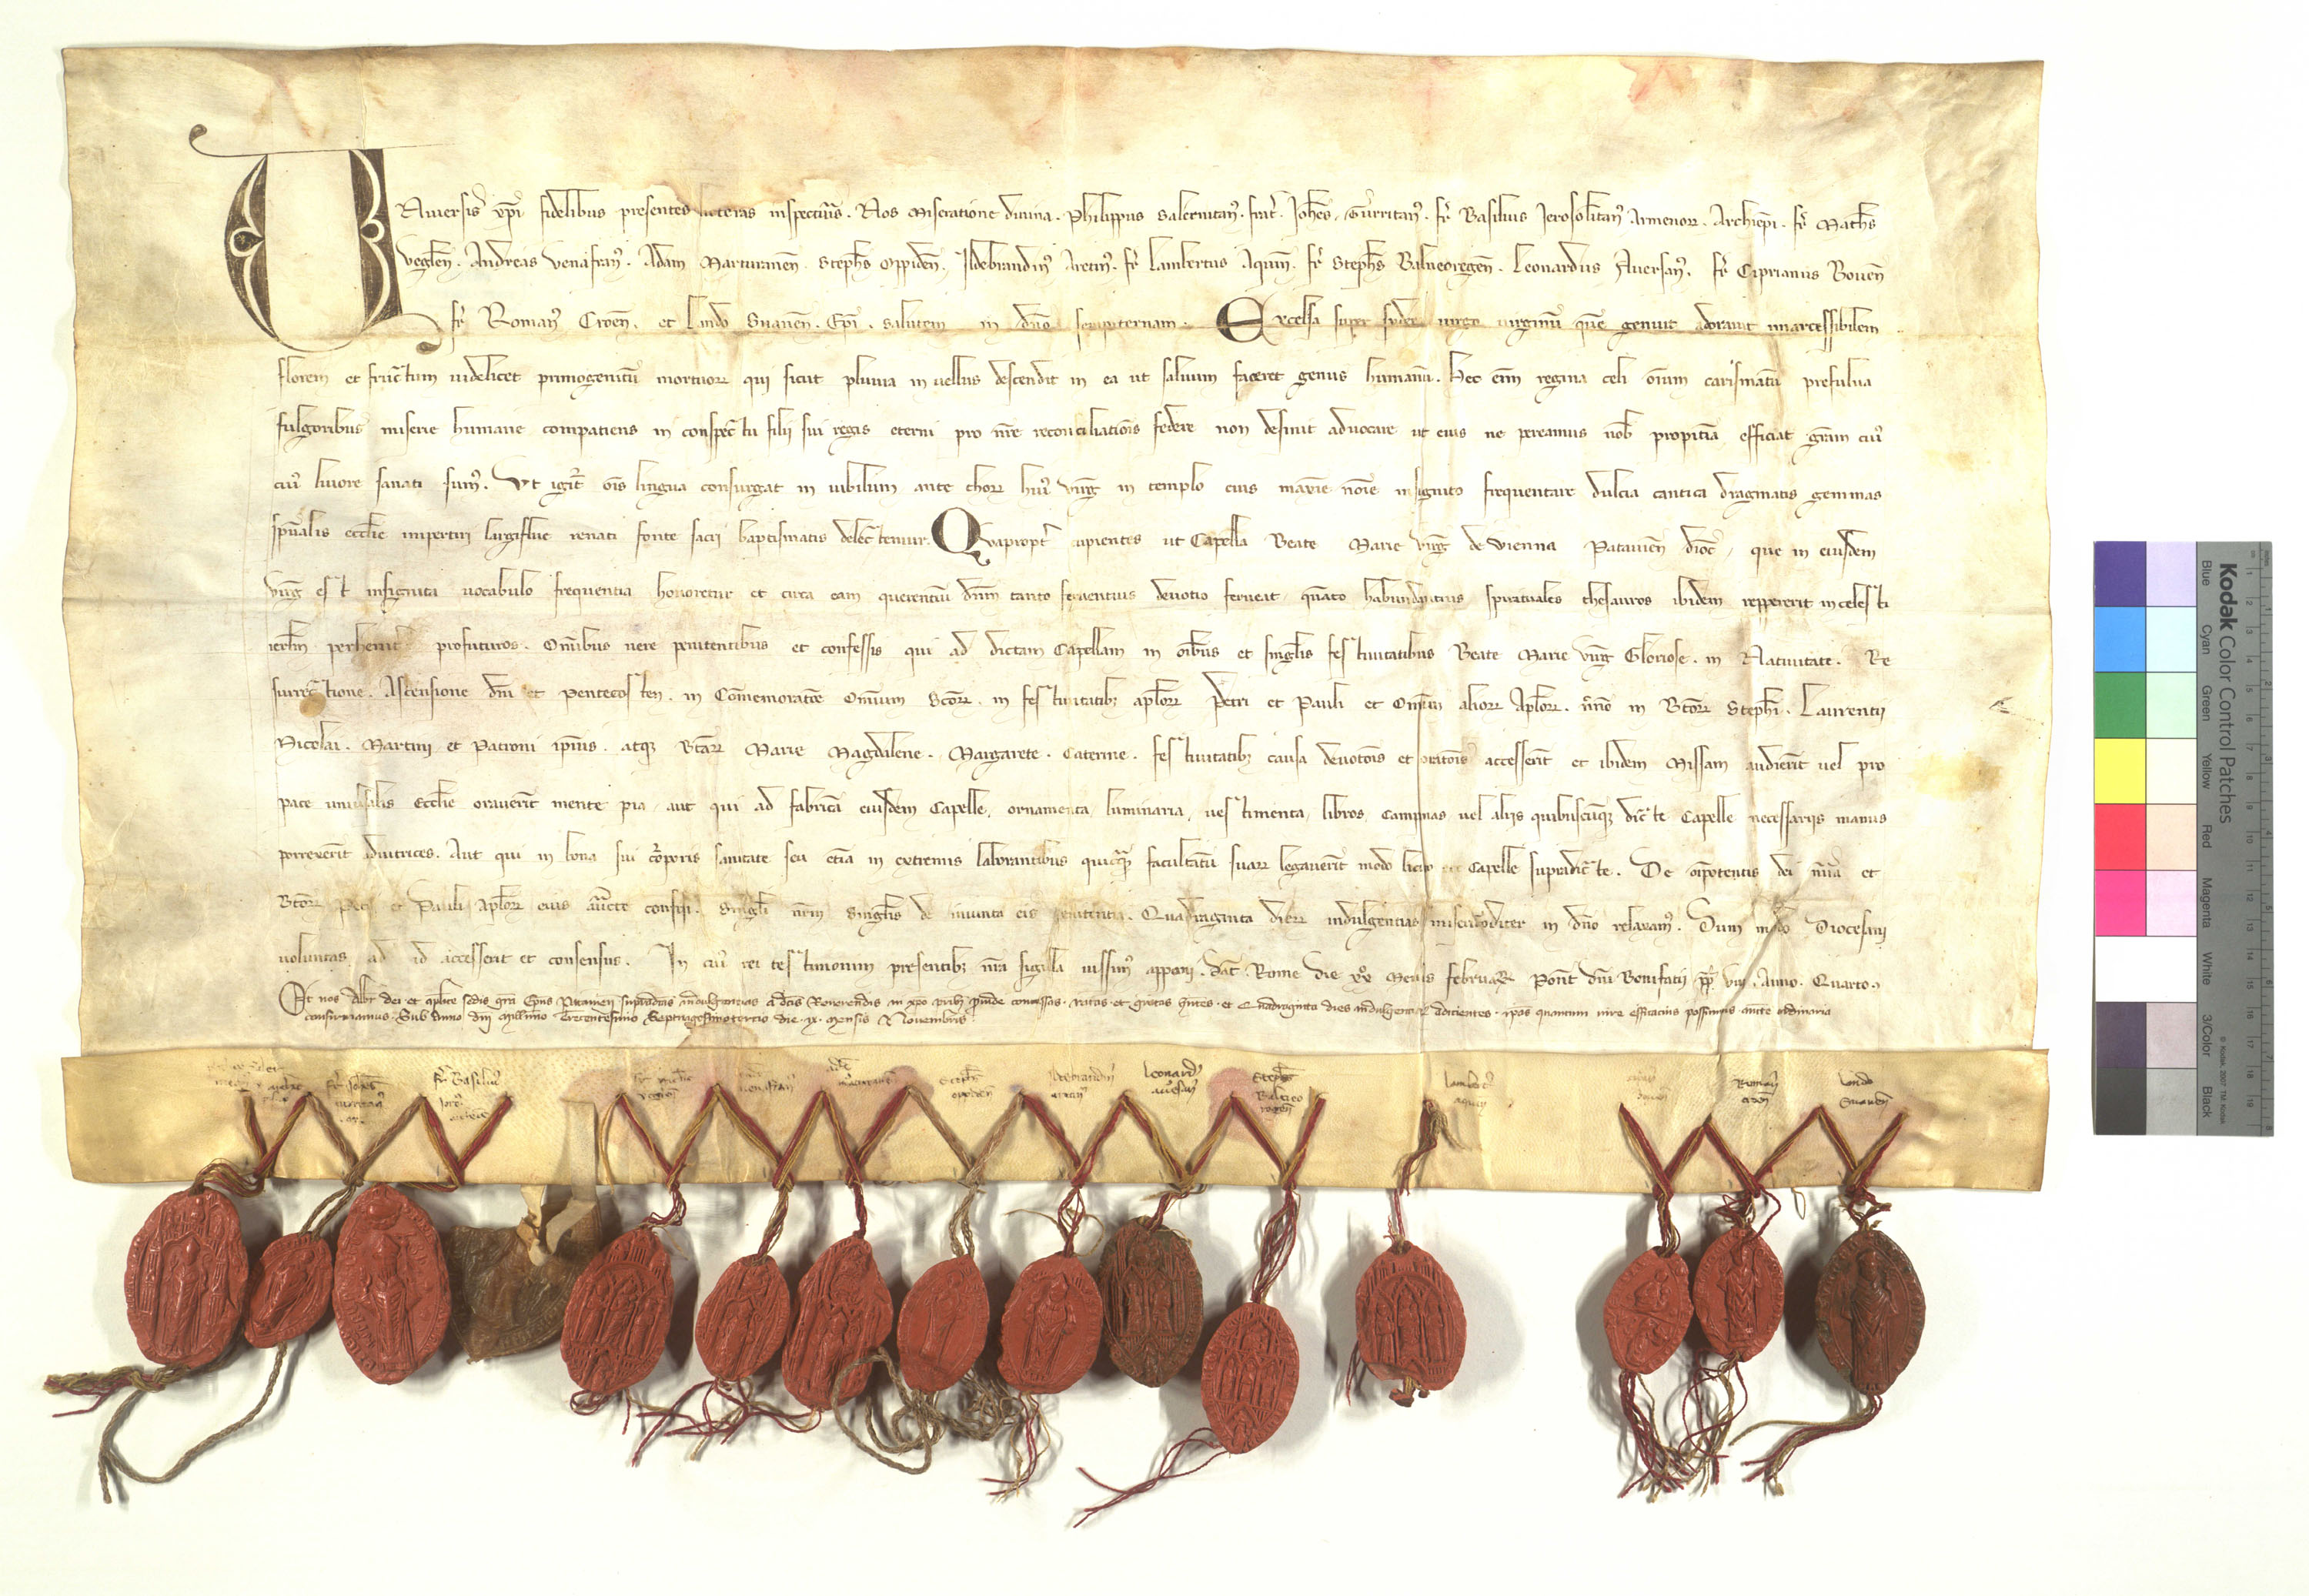 Universis xpi fidelibus presentes litteras inspecturis. Nos Miseratione divina. Philippus Salernitan. frat. Johes. Turritan. fr Basilius Jerosolitan Armenor. Archiepi. fr Maths
Veglen. Andreas Venafran. Adam Marturanen. Stephs Oppiden. Ildebrandin Aretin. fr Lambertus Aquin. fr Stephs Balneoregen. Leonardus Aversan. fr Ciprianus Boven
fr Roman Croen. et Lando Suanen. Epi. salutem in dno sempiternam. Excelsa super sydera virgo virginu que genuit adoravit inmarcessibilem
florem et fructum videlicet primogenitu mortuor qui sicut pluvia in vellus descendit in ea ut salvum faceret genus humanu. Hec eni regina celi oium carismatu prefulva
fulgoribus miserie humane compatiens in conspectu filii sui regis eterni pro nre reconciliationis federe non desinit advocare ut eius ne pereamus nob propitia efficiat gram cui
cui livore sanati sum. Ut igit ois lingua consurgat in iubilum ante chor hui virg in templo eius maxie noie insignito frequentare dulcia cantica dragmatis gemmas
spualis ecclie impertiri largiflue renati fonte sacri baptismatis delectentur. Quapropt cupientes ut Capella Beate Marie virg de Vienna Patavien dioc, que in eiusdem
virg est insignita vocabulo frequentia honoretur et circa eam querentiu dnm tanto ferventius devotio ferveat, quanto habundantius spirituales thesauros ibidem reppererit in celesti
ierlm perhenit profuturos. Omnibus vere penitentibus et confessis qui ad dictam Capellam in oibus et singlis festivitatibus Beate Marie virg Gloriose. in Nativitate. Re
surrectione. Ascensione dni et Pentecosten. in Comemoratoe Omnium Scor. in festivitatib aplor Petri et Pauli et Omium alior Aplor. nno in Btor Stephi. Laurentii
Nicolai. Martini et Patroni ipius. atq Btar Marie Magdalene. Margarete. Caterine. festivitatib causa devotois et oratois accesserit et ibidem Missam audierit vel pro
pace universalis Ecclie oraverit mente pia, aut qui ad fabrica eiusdem Capelle, ornamenta, luminaria, vestimenta, libros, campanas vel aliis quibuscuq dicte Capelle necessariis manus
porrexerit adiutrices. Aut qui in bona sui corporis sanitate seu etia in extremis laborantibus quicq facultatu suar legaverit modo licito Capelle supradicte. De oipotentis dei mia et
Btor Petri et Pauli Aplor eius aucte confisi. Singli nrm singlis de iniuncta eis penitentia. Quadraginta dier indulgentias misericorditer in dno relaxam. Dum modo Diocesani
voluntas ad id accesserit et consensus. In cui rei testimonium presentib nra sigilla iussim apponi. Dat Rome die xx Mensis februar Pont dni Bonifatii pp viii. Anno. Quarto.
Et nos Albt dei et aplice sedis gra Epus Patavien supradictas indulgentias a dictis Reverendis in xpo prib provide concessas. ratas et gratas hntes. et Quadraginta dies indulgentiar adicientes. ipas quantum iure efficacius possumus aucte ordinaria
confirmamus. Sub Anno dni Millimo Trecentesimo Septuagesimotercio die. ix. Mensis Novembris.
fr Johes
turritan
fr Basilius
Stephs
oppiden
Ildebrandin
aretin
Leonard
aversan
Steph
Balneo
regen
Lambert
aquin
Roman
croen
Lando
Suanen
Kodak Color Control Patches
Blue Cyan Green Yellow Red Magenta White 3/Color Black
© Kodak, 2007 TM: Kodak